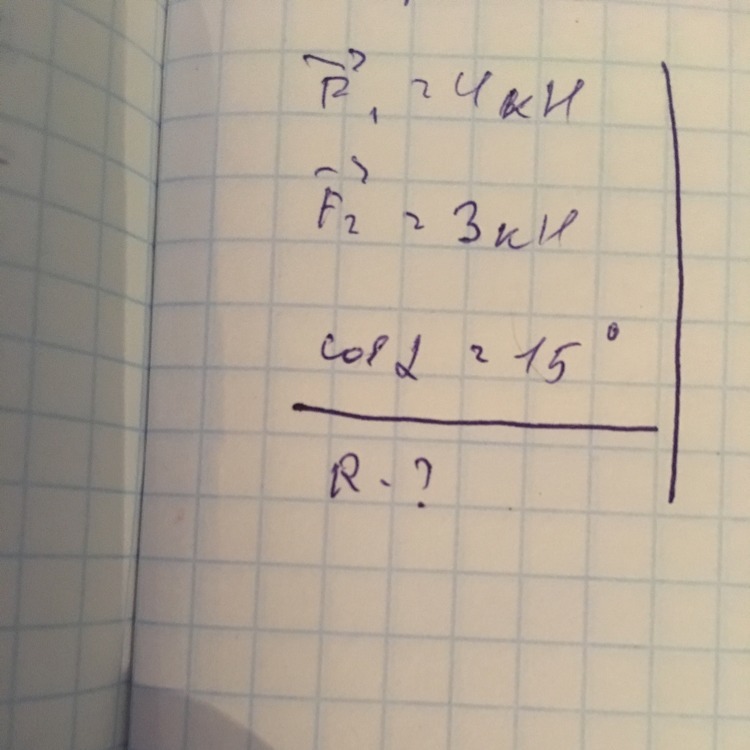 F⃗₁ = 4 кН
F⃗₂ = 3 кН
cos α = 15°
R - ?